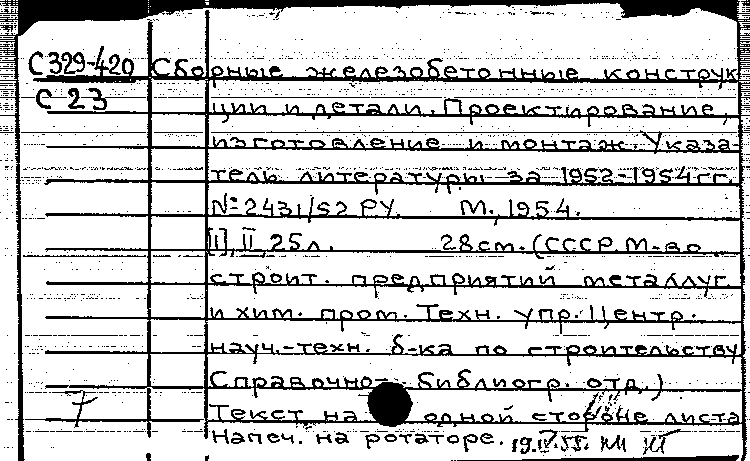 С329-420 Сборные железобетонные конструк
С23 ции и детали. Проектирование,
изготовление и монтаж. Указа-
тель литературы за 1952-1954гг.
№2431/52 РУ. М., 1954.
[1], II, 25л. 28см. (СССР. М-во
строит. предприятий металлуг.
и хим. пром. Техн. упр. Центр.
науч.-техн. б-ка по строительству
Справочно- библиогр. отд.)
Текст на одной стороне листа
Напеч. на ротаторе. 19.IV.55.